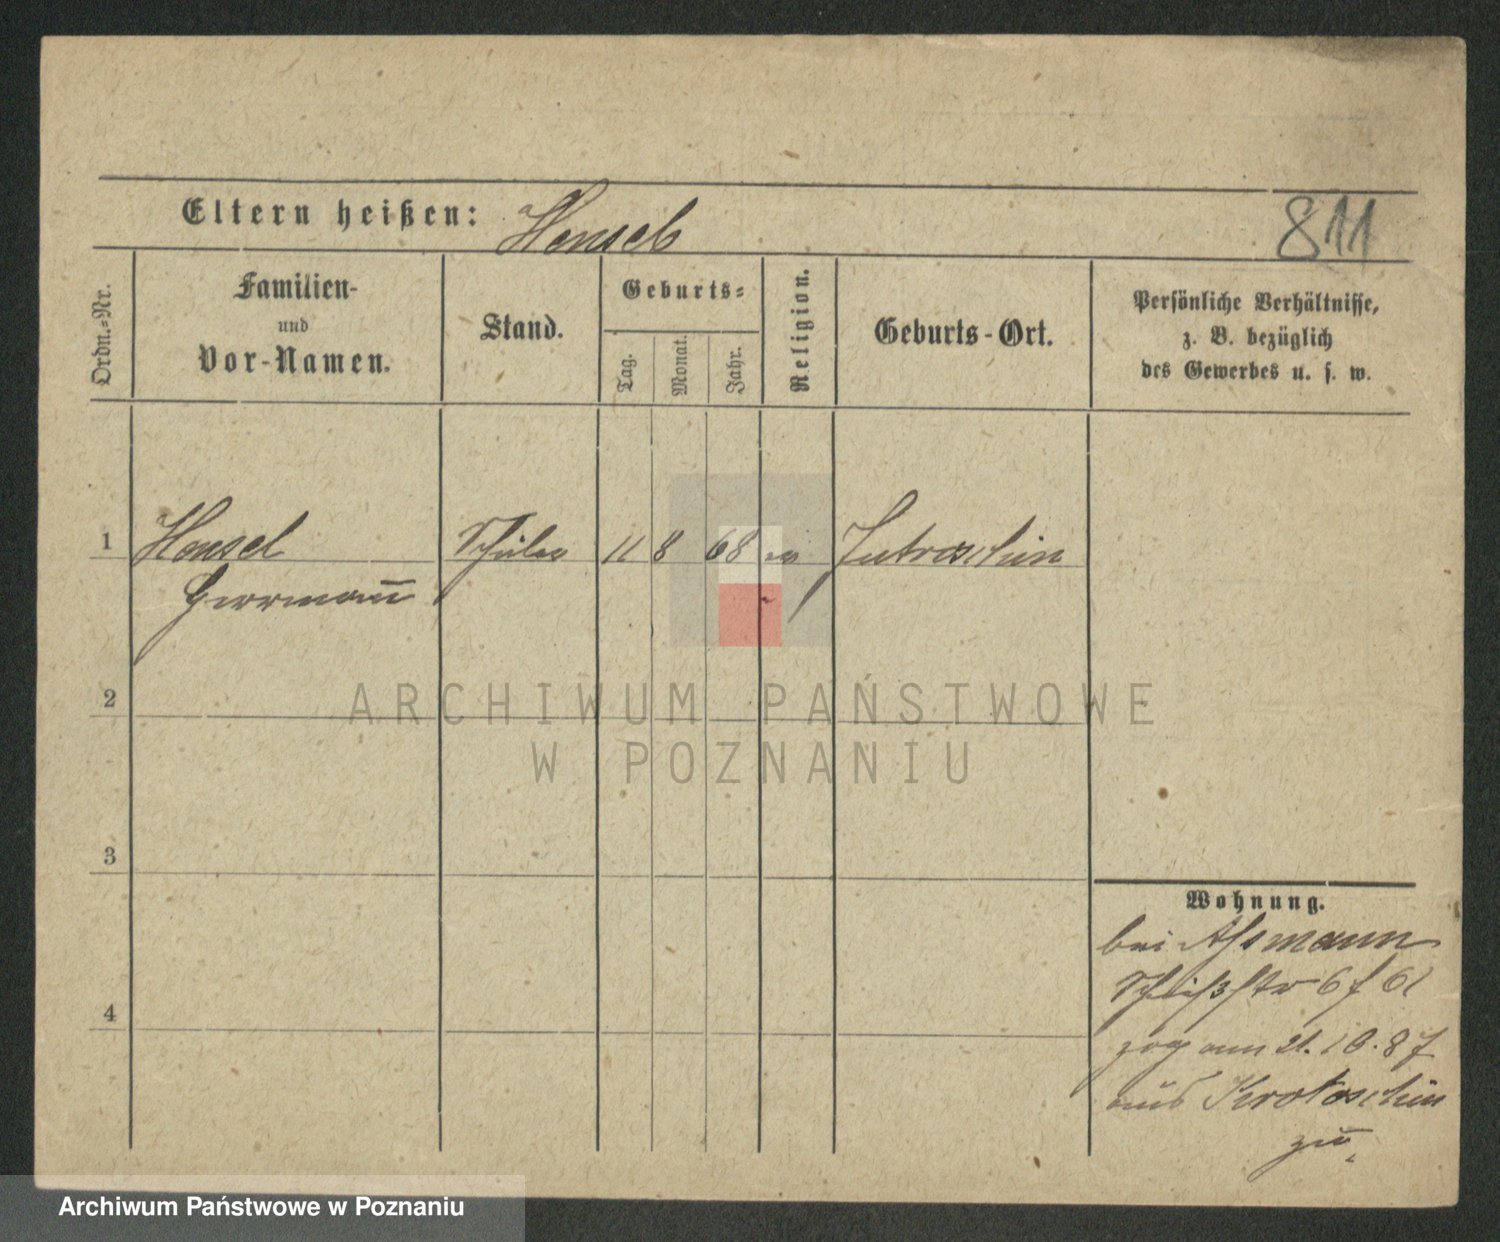 Eltern heißen: Hensel
811
Ordn.-Nr.
Familien-
und
Vor-Namen.
Stand.
Geburts-
Tag.
Monat.
Jahr.
Religion.
Geburts-Ort.
Persönliche Verhältnisse,
z. B. bezüglich
des Gewerbes u. s. w.
1 Hensel Schüler 11 8 68 ev Jutroschin
Herrmann
2
3
4
ARCHIWUM PAŃSTWOWE
W POZNANIU
Wohnung.
bei Assmann
6
zog am 21.10.87
aus Krotoschin
zu
Archiwum Państwowe w Poznaniu